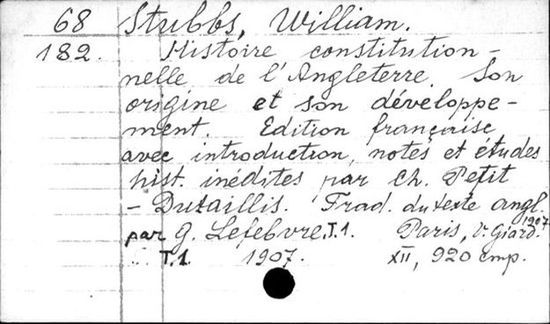 68 Stubbs, William.
182. Histoire constitution-
nelle de l'Angleterre. Son
origine et son développe-
ment. Edition française
avec introduction, notes et études
hist. inédites par Ch. Petit
- Dutaillis. Trad. du texte angl.
par G. Lefebvre. T.1. Paris, V. Giard. 1907.
T.1. 1907. XII, 920 стр.